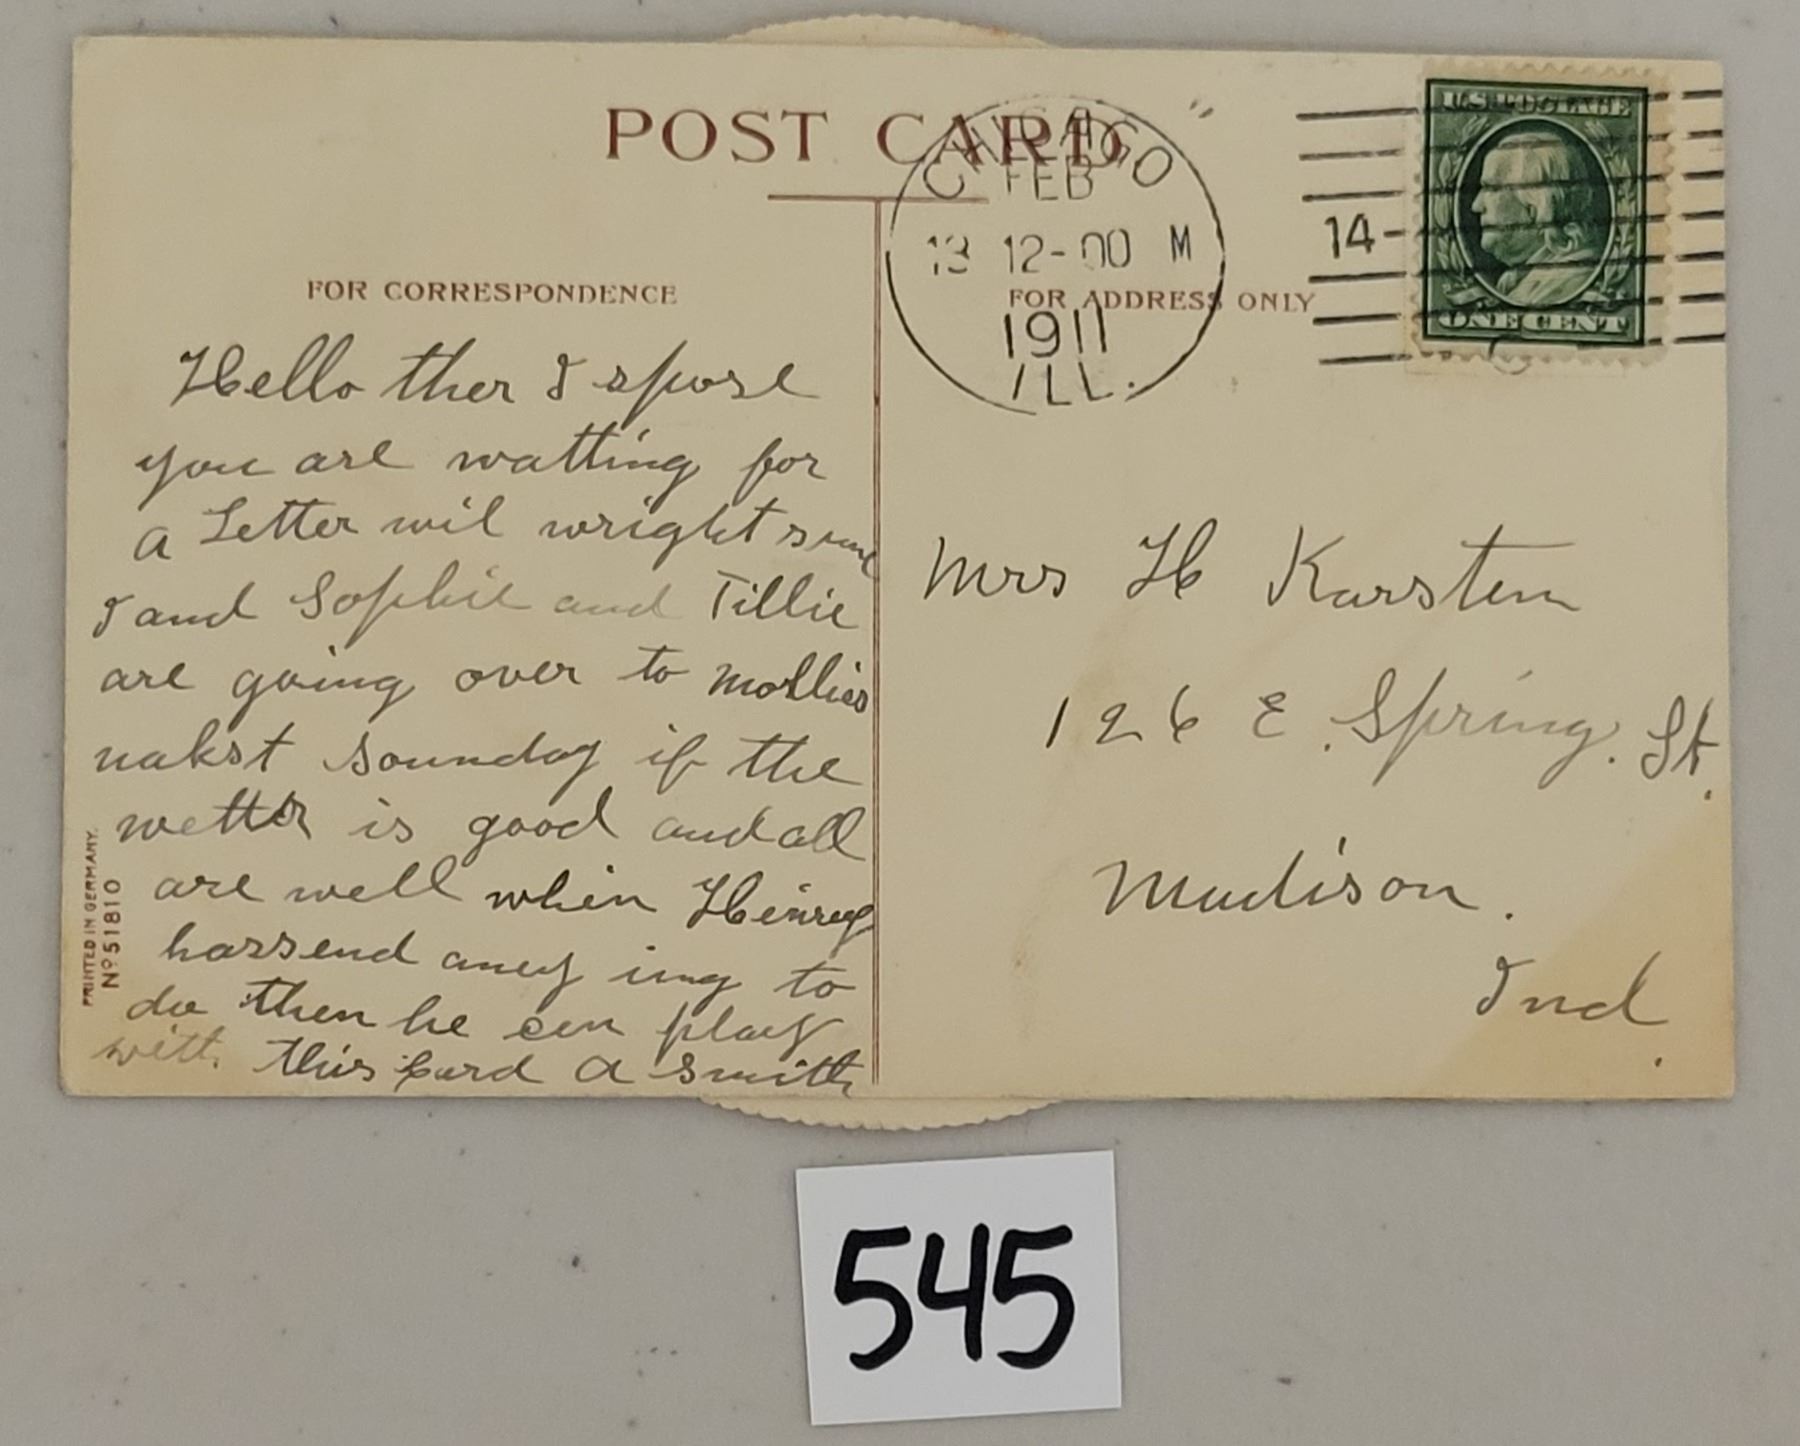 POST CARD
CHICAGO
FEB
13 12-00 M
1911
ILL.
14
U.S. POSTAGE
ONE CENT
FOR CORRESPONDENCE
FOR ADDRESS ONLY
Hello ther I spose
you are watting for
a Letter wil wright sune
I and Sophie and Tillie
are going over to Mollies
nakst sounday if the
wetter is good and all
are well when Heinrey
hassend aney ing to
do then he cen play
witt this Card A Smith
Mrs H Karsten
126 E. Spring. St.
Madison.
Ind.
PRINTED IN GERMANY.
Nº 51810
545